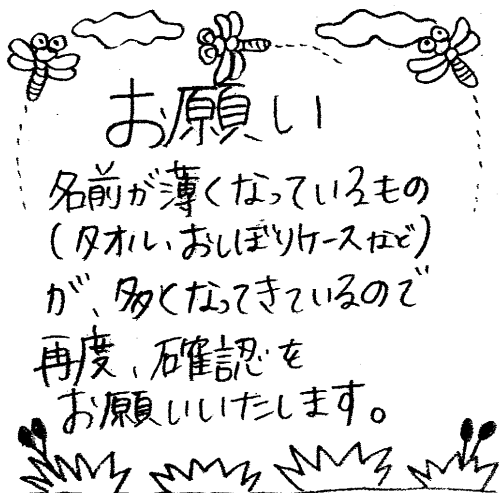 お願い
名前が薄くなっているもの
(タオル、おしぼりケースなど)
が、多くなってきているので
再度、確認を
お願いいたします。